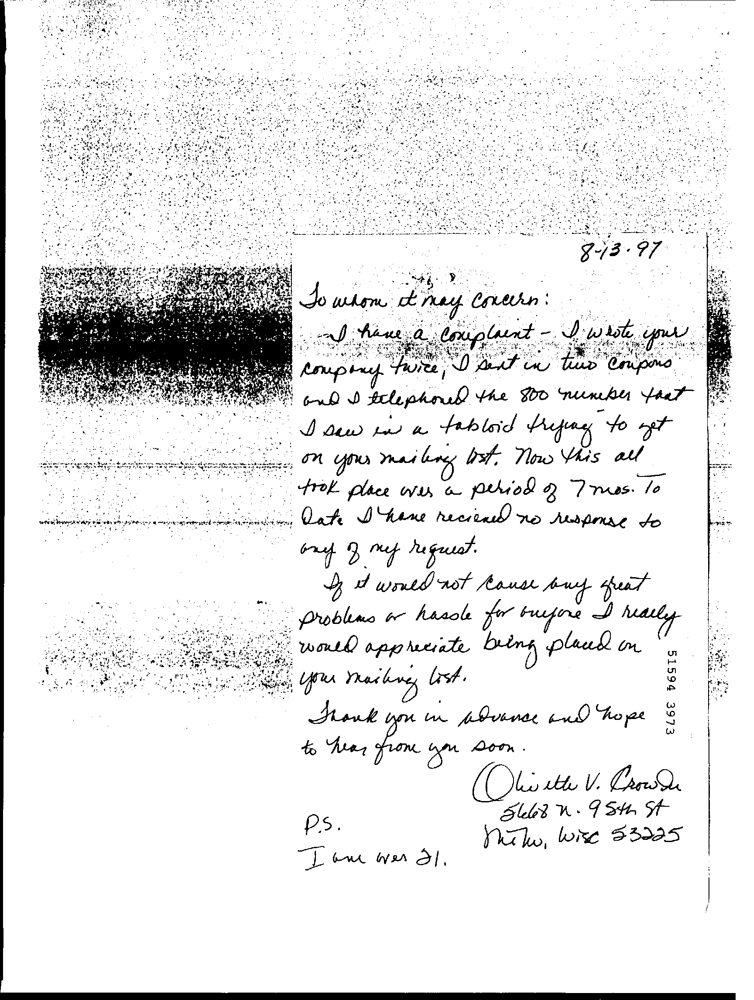 8-13-97
To whom it may concern:
I have a complaint - I wrote your
company twice, I sent in two coupons
and I telephoned the 800 number that
I saw in a tabloid trying to get
on your mailing list. Now this all
took place over a period of 7 mos. To
Date I have recieved no response to
any of my request.
If it would not cause any great
problems or hassle for anyone I really
would appreciate being placed on
your mailing list.
Thank you in advance and hope
to hear from you soon.
Olivette V. Crowder
5668 N. 95th St
Milw, Wisc 53225
P.S.
I am over 21.
51594 3973